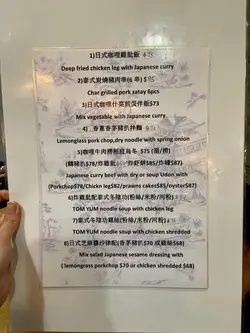 1)日式咖哩雞扒飯
Deep fried chicken leg with Japanese curry
2)泰式炭燒豬肉串(6 串) $
Char grilled pork satay 6pcs
3)日式咖哩什菜煎蛋伴飯$73
Mix vegetable with Japanese curry
4) 香蔥香茅豬扒拌麵
Lemonglass pork chop,dry noodle with spring onion
5)咖哩牛肉撈粗麵烏冬 $75 (湯/撈)
(轉豬扒$78/炸雞扒 /炸蝦餅$85/炸蠔$87)
Japanese curry beef with dry or soup Udon with
(Porkchop$78/Chickn leg$82/prawns cakes$85/oyster$87)
6)炸雞扒配泰式冬陰功(粉絲/米粉/河粉)
TOM YUM noodle soup with chicken leg
7)泰式冬陰功雞絲(粉絲/米粉/河粉)
TOM YUM noodle soup with chicken shredded
8)日式芝麻醬沙律配(香茅豬扒$70 或雞絲$68)
Mix salad Japanese sesame dressing with
( lemongrass porkchop $70 or chicken shredded $68)